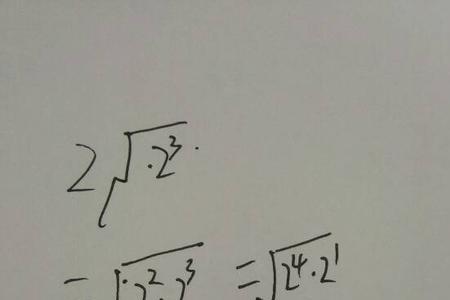 2√·2³·
-√·2²·2³ =√2⁴·2¹